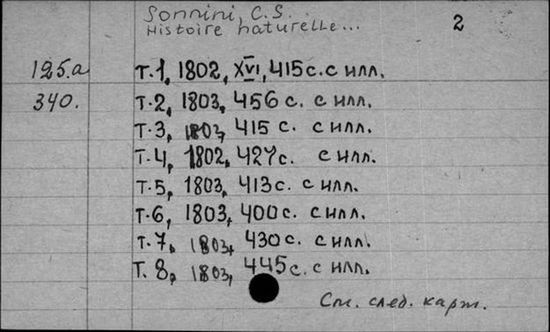 Sonnini, C.S.
Histoire naturelle... 2
125.a т.1, 1802, XVI, 415 с. с илл.
340. т.2, 1803, 456 с. с илл.
т.3, 1803, 415 с. с илл.
т.4, 1802, 427 с. с илл.
т.5, 1803, 413 с. с илл.
т.6, 1803, 400 с. с илл.
т.7, 1803, 430 с. с илл.
т.8, 1803, 445 с. с илл.
См. след. карт.